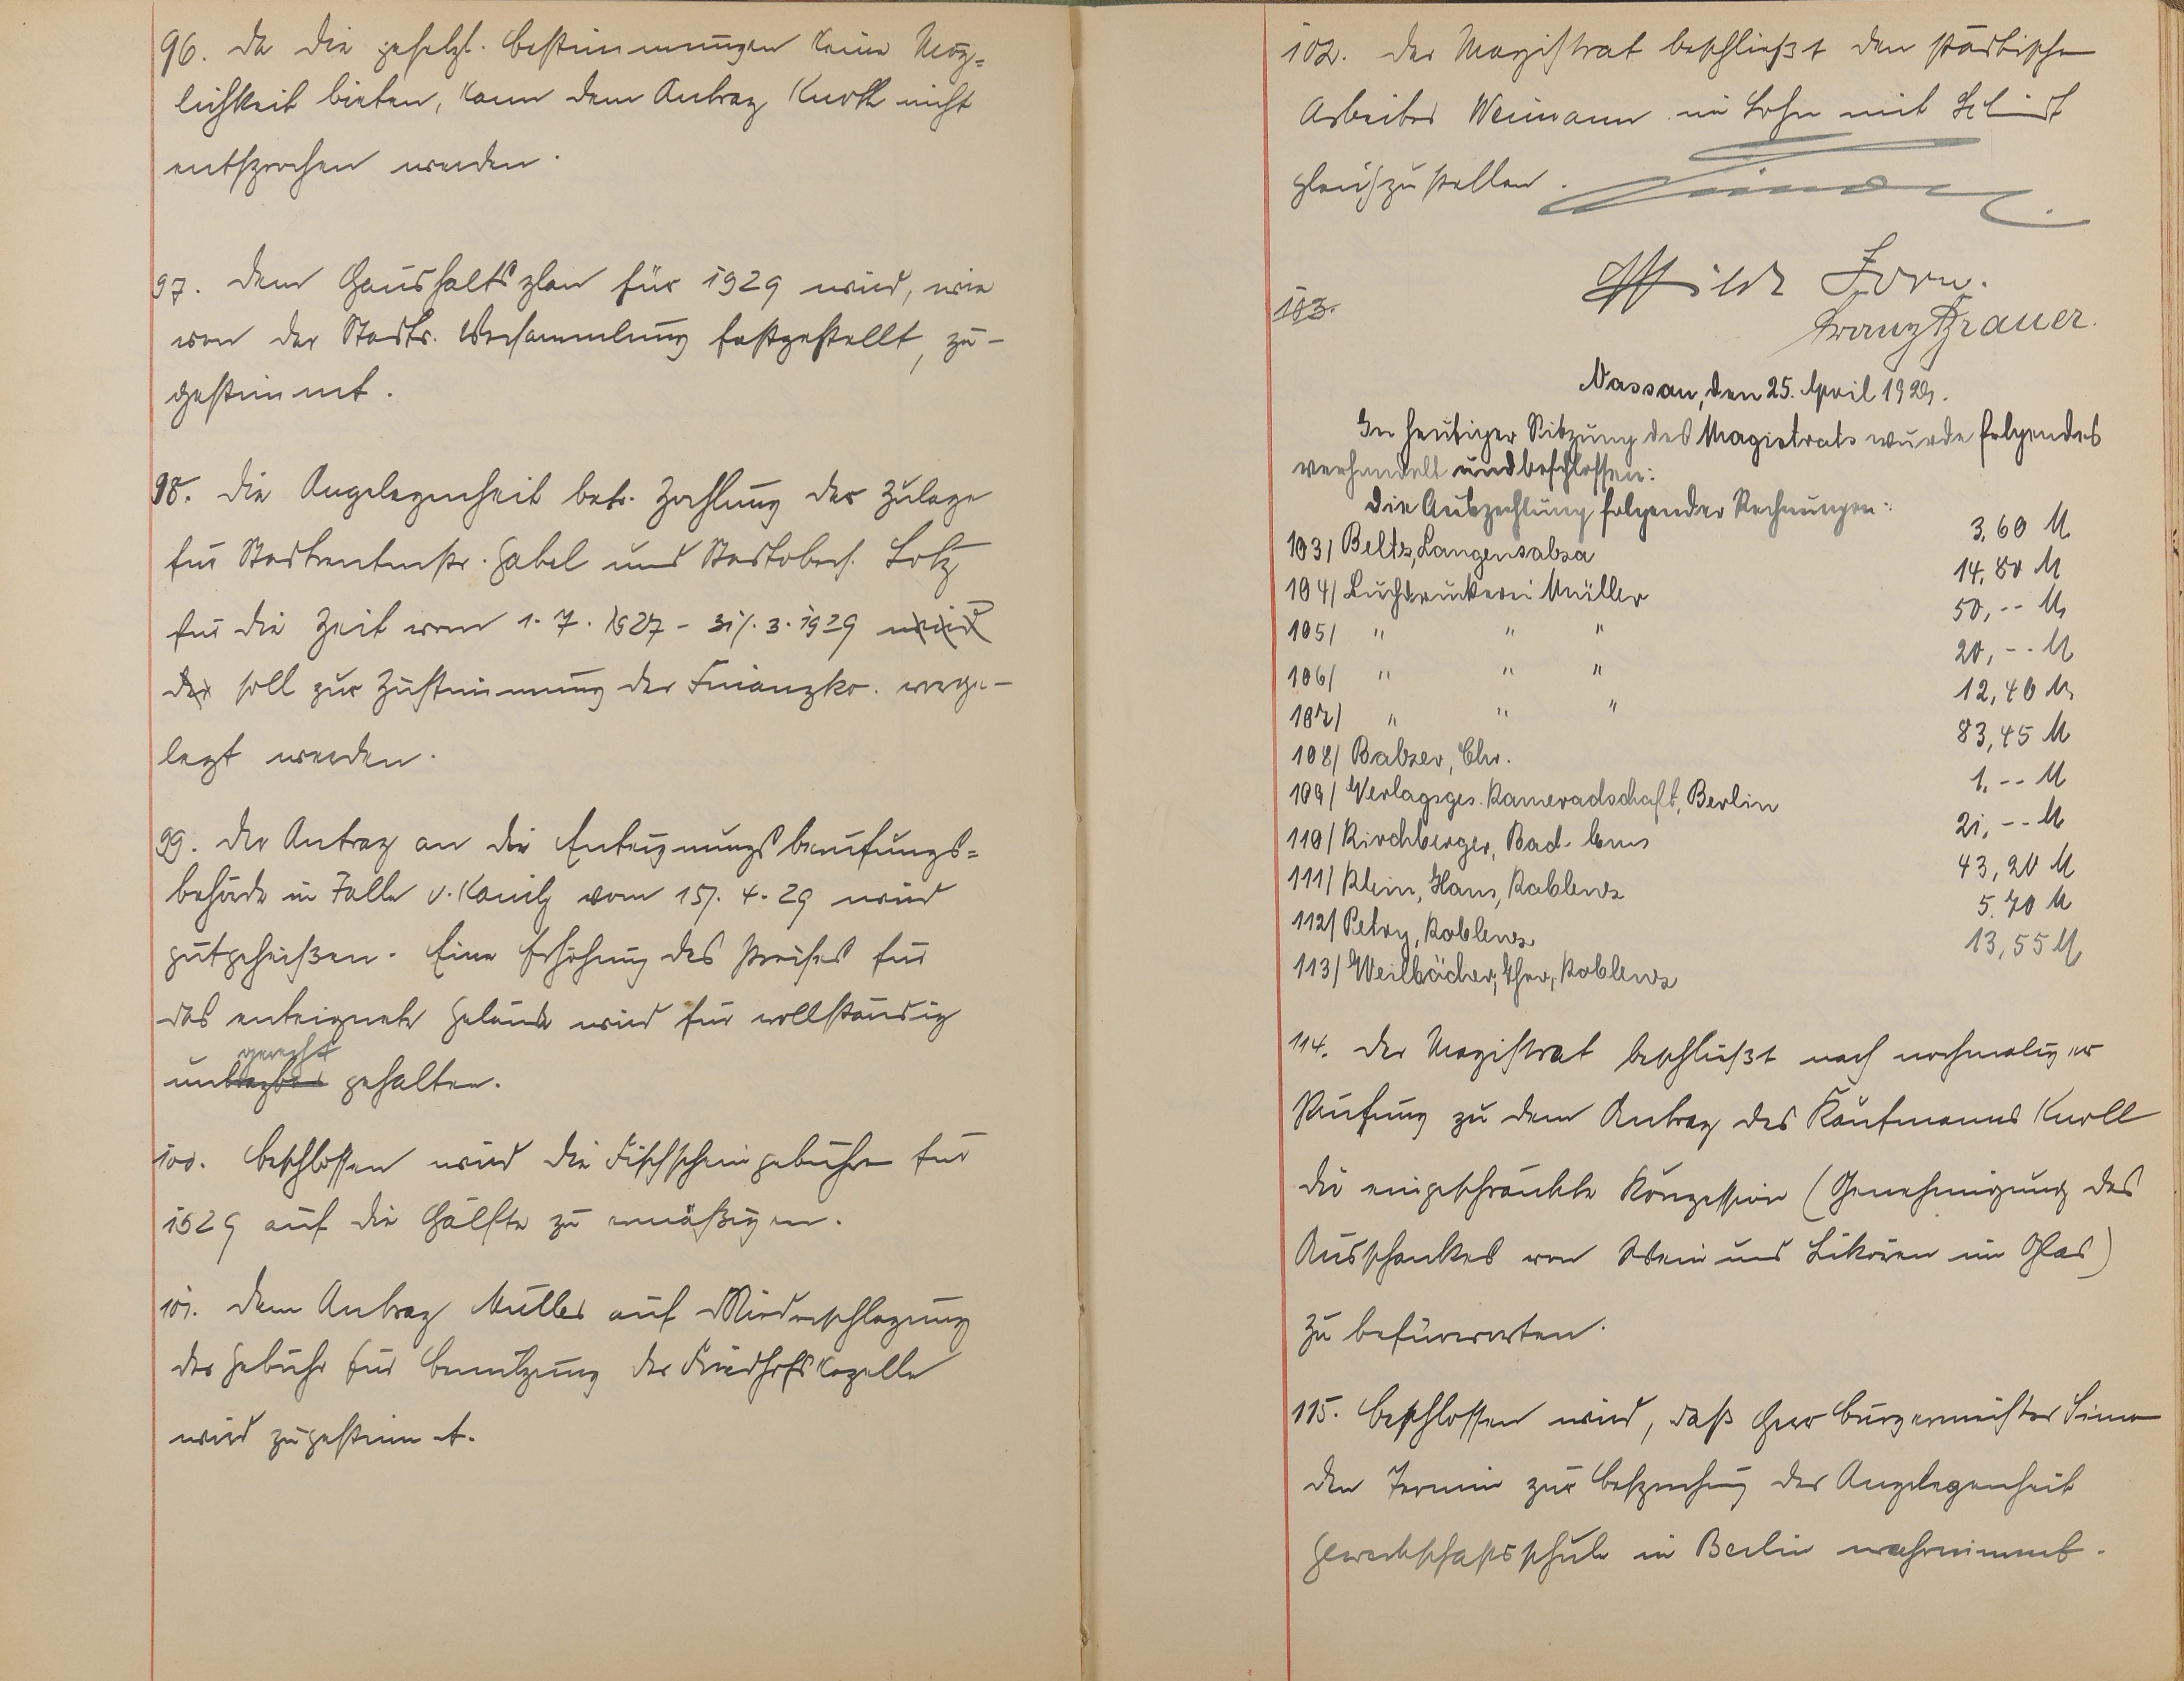 96. Da die gesetzl. Bestimmungen keine Mög=
lichkeit bieten, kann dem Antrag Knoth nicht
entsprochen werden.
97. Dem Haushaltsplan für 1929 wird, wie
von der Stadtv. Versammlung festgestellt, zu-
gestimmt.
98. Die Angelegenheit betr. Zahlung der Zulage
für Stadtrentmstr. Gabel und Stadtobers. Lotz
für die Zeit vom 1.7.1927 - 31/.3.1929 wird
der soll zur Zustimmung der Finanzko. vorge-
legt werden.
99. Der Antrag an die Enteignungsberufungs=
behörde in Falle v. Kanitz vom 15/.4.29 wird
gutgeheißen. Eine Erhöhung des Preises für
das enteignete Gelände wird für vollständig
gerecht
un gehalten.
100. Beschlossen wird die Fischscheingebühren für
1929 auf die Hälfte zu ermäßigen.
101. Dem Antrag Müller auf Niederschlagung
der Gebühr für Benutzung der Friedhofskapelle
wird zugestimmt.
102. Der Magistrat beschließt den städtischen
Arbeiter Weimann im Lohn mit
gleichzustellen.
103.
Nassau, den 25. April 1929.
In heutiger Sitzung des Magistrats wurde folgendes
verhandelt und beschlossen:
Die Auszahlung folgender Rechnungen:
103/ Beltz, Langensalza 3,60 M
104/ Buchdruckerei Müller 14,80 M
105/ " " " 50,-- M
106/ " " " 20,-- M
107/ " " " 12,40 M
108/ Balzer, Chr. 83,45 M
109/ Verlagsges. Kameradschaft, Berlin 1,-- M
110/ Kirchberger, Bad-Ems 21,-- M
111/ Klein, Hans, Koblenz 43,20 M
112/ Petry, Koblenz 5.70 M
113/ Weilbächer, Koblenz 13,55 M
114. Der Magistrat beschließt nach nochmaliger
Prüfung zu dem Antrag des Kaufmanns Knoll
die eingeschränkte Konzession (Genehmigung des
Ausschankes von Wein und Likören im Glas)
zu befürworten.
115. Beschlossen wird, daß Herr Bürgermeister Simon
den Termin zur Besprechung der Angelegenheit
Gewerkschaftsschule in Berlin wahrnimmt.